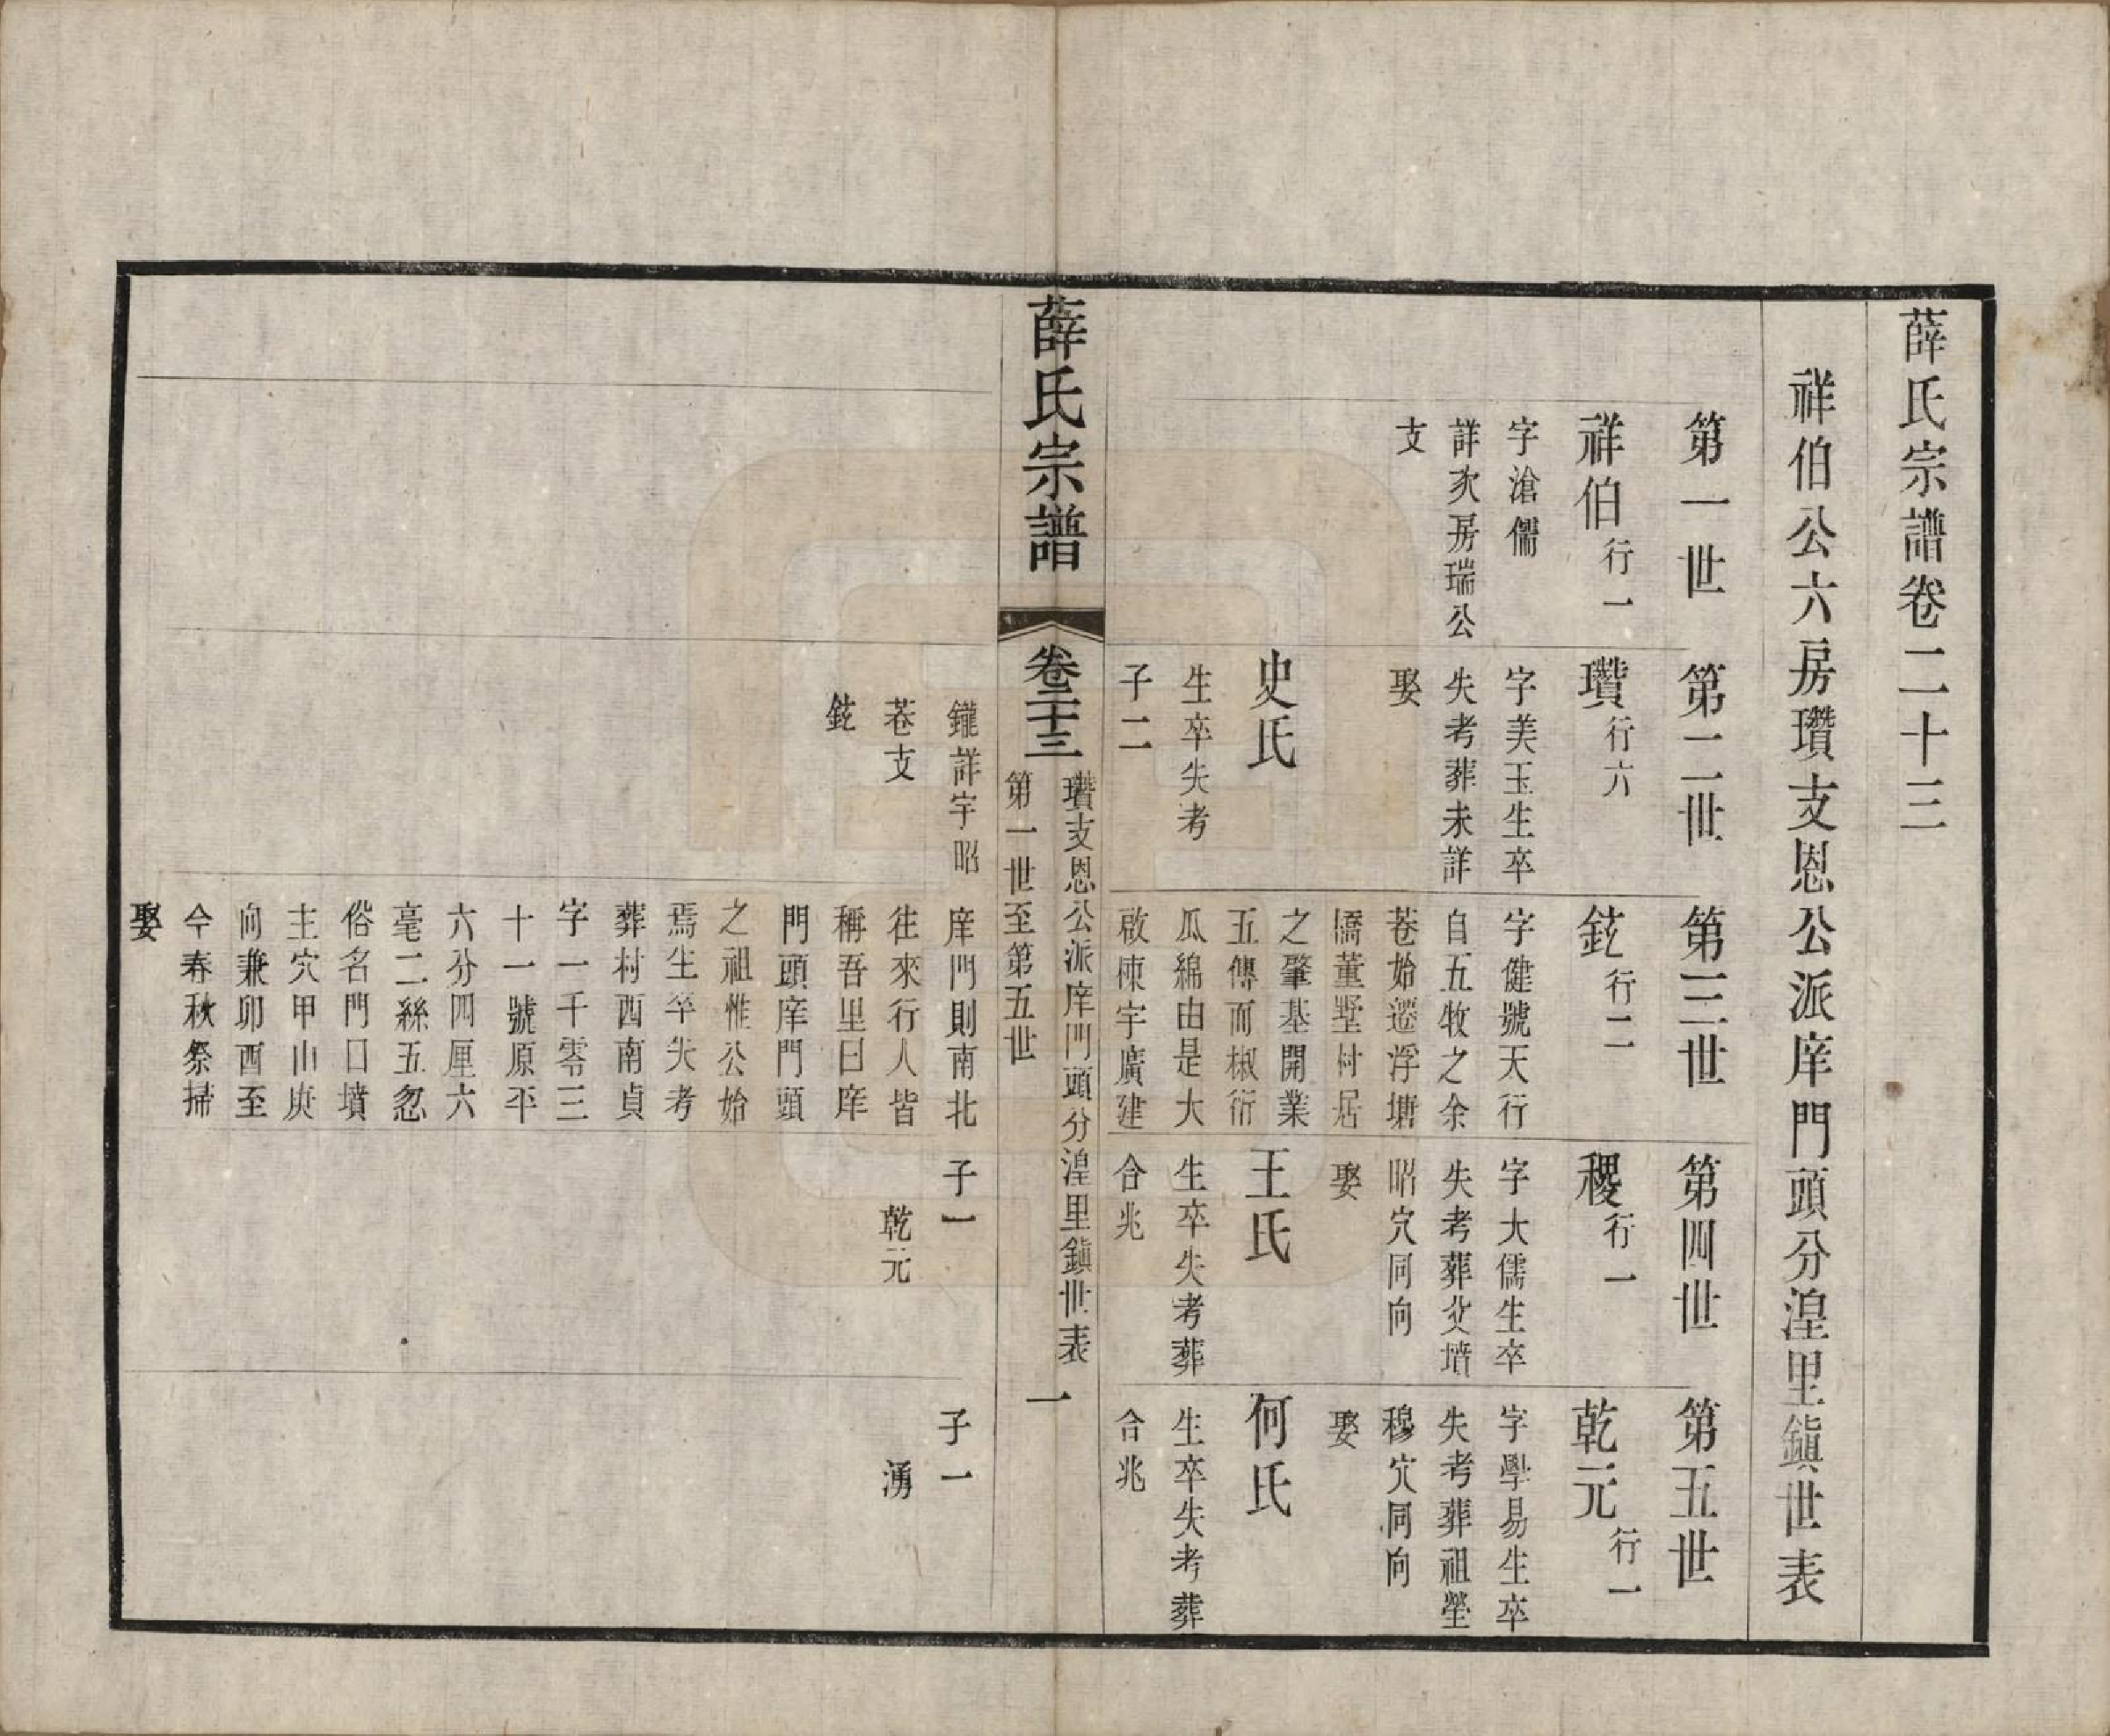 薛氏宗譜卷二十三
祥伯公六房瓚支恩公派庠門頭分湟里鎮世表
第一世
祥伯行一
字滄儒
詳次房瑞公
支
第二世
瓚行六
字美玉生卒
失考葬未詳
娶
史氏
生卒失考
子二
第三世
鉉行二
字健號天行
自五牧之余
巷始遷浮塘
橋董墅村居
之肇基開業
五傳而椒衍
瓜綿由是大
啟棟宇廣建
第四世
稷行一
字大儒生卒
失考葬父塋
昭穴同向
娶
王氏
生卒失考葬
合兆
第五世
乾元行一
字學易生卒
失考葬祖塋
穆穴同向
娶
何氏
生卒失考葬
合兆
薛氏宗譜
卷二十三
瓚支恩公派庠門頭分湟里鎮世表
第一世至第五世
一
鑨詳宇昭
巷支
鉉
庠門則南北
往來行人皆
稱吾里曰庠
門頭庠門頭
之祖惟公始
焉生卒失考
葬村西南貞
字一千零三
十一號原平
六分四厘六
毫二絲五忽
俗名門口墳
主穴甲山庚
向兼卯酉至
今春秋祭掃
娶
子一
乾元
子一
湧